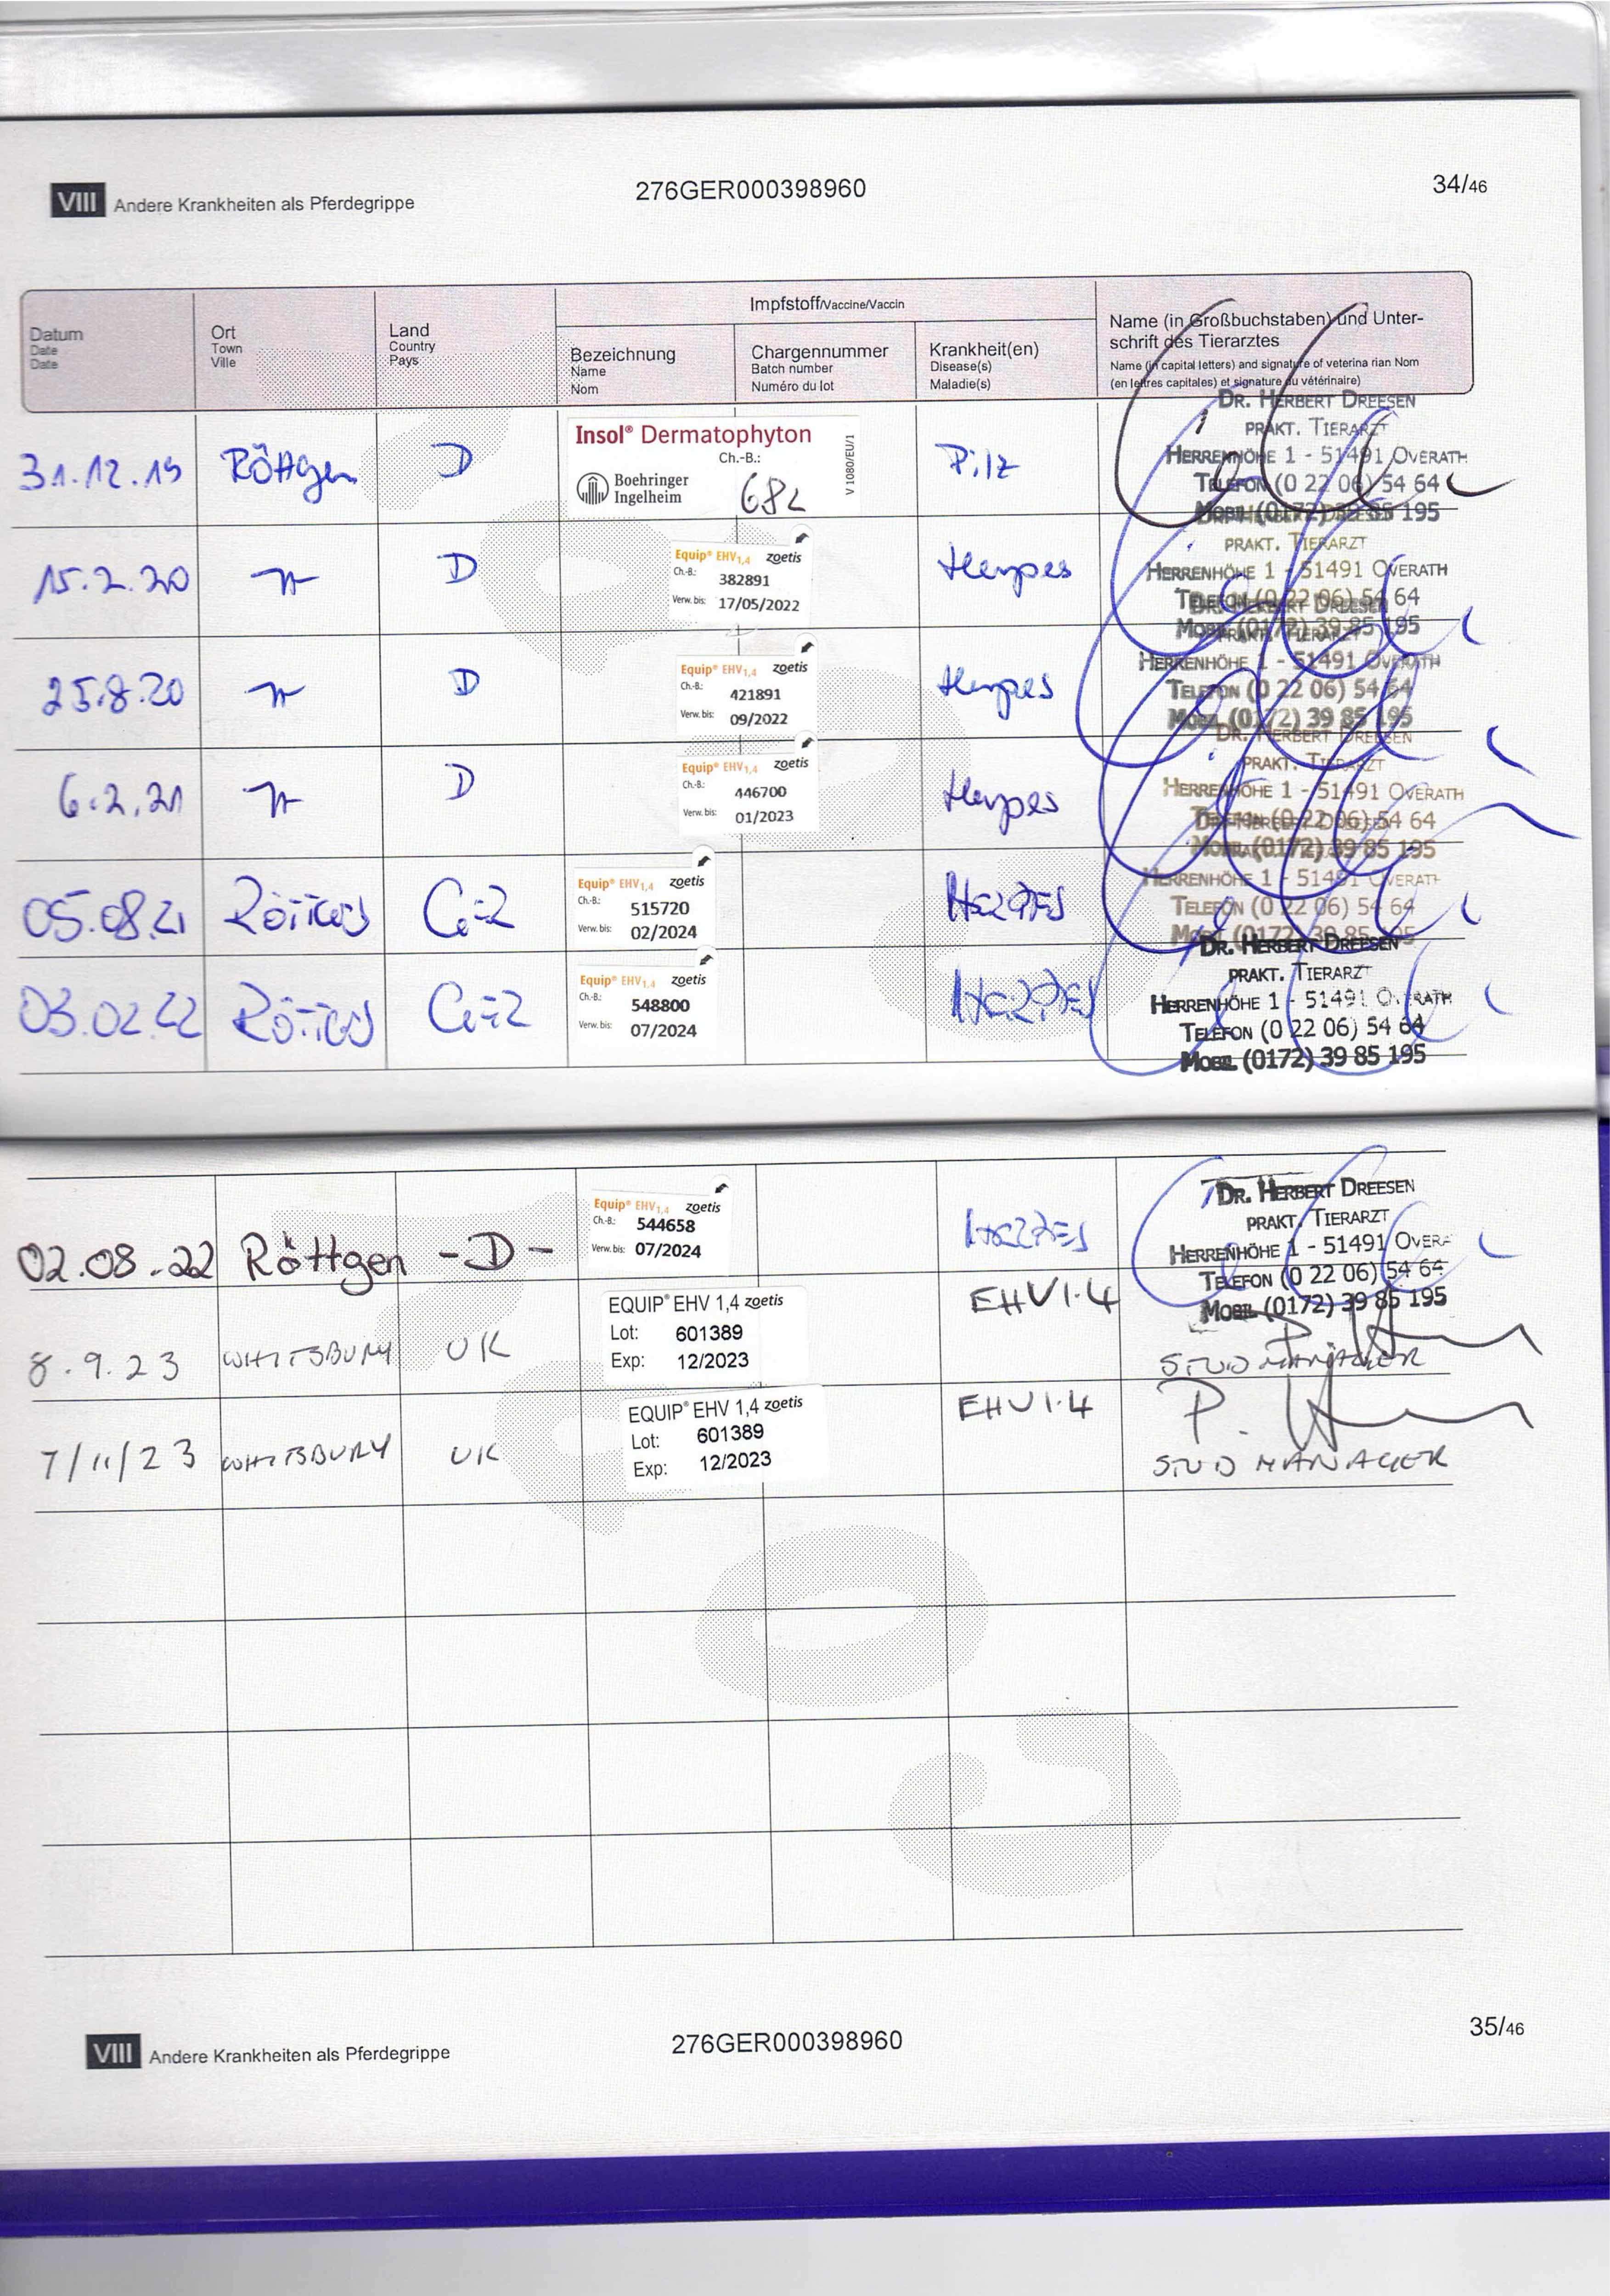 VIII Andere Krankheiten als Pferdegrippe
276GER000398960
34/46
Datum
Date
Date
Ort
Town
Ville
Land
Country
Pays
Impfstoff/Vaccine/Vaccin
Bezeichnung
Name
Nom
Chargennummer
Batch number
Numéro du lot
Krankheit(en)
Disease(s)
Maladie(s)
Name (in Großbuchstaben) und Unter-
schrift des Tierarztes
Name (in capital letters) and signature of veterina rian Nom
(en lettres capitales) et signature du vétérinaire)
31.12.19 Röttgen D
Insol® Dermatophyton
Ch.-B.:
Boehringer
Ingelheim
682
V 1080/EU/1
Pilz
DR. HERBERT DREESEN
PRAKT. TIERARZT
HERRENHÖHE 1 - 51491 OVERATH
TELEFON (0 22 06) 54 64
MOBIL (0172) 39 85 195
15.2.20 D
Equip® EHV1,4 zoetis
Ch.-B.: 382891
Verw. bis: 17/05/2022
Herpes
PRAKT. TIERARZT
HERRENHÖHE 1 - 51491 OVERATH
TELEFON (0 22 06) 54 64
MOBIL (0172) 39 85 195
25.8.20 D
Equip® EHV1,4 zoetis
Ch.-B.: 421891
Verw. bis: 09/2022
Herpes
DR. HERBERT DREESEN
PRAKT. TIERARZT
HERRENHÖHE 1 - 51491 OVERATH
TELEFON (0 22 06) 54 64
MOBIL (0172) 39 85 195
6.2.21 D
Equip® EHV1,4 zoetis
Ch.-B.: 446700
Verw. bis: 01/2023
Herpes
DR. HERBERT DREESEN
PRAKT. TIERARZT
HERRENHÖHE 1 - 51491 OVERATH
TELEFON (0 22 06) 54 64
MOBIL (0172) 39 85 195
05.08.21 Röttgen GER
Equip® EHV1,4 zoetis
Ch.-B.: 515720
Verw. bis: 02/2024
HERPES
HERRENHÖHE 1 - 51491 OVERATH
TELEFON (0 22 06) 54 64
MOBIL (0172) 39 85 195
03.02.22 Röttgen GER
Equip® EHV1,4 zoetis
Ch.-B.: 548800
Verw. bis: 07/2024
HERPES
DR. HERBERT DREESEN
PRAKT. TIERARZT
HERRENHÖHE 1 - 51491 OVERATH
TELEFON (0 22 06) 54 64
MOBIL (0172) 39 85 195
02.08.22 Röttgen -D-
Equip® EHV1,4 zoetis
Ch.-B.: 544658
Verw. bis: 07/2024
HERPES
DR. HERBERT DREESEN
PRAKT. TIERARZT
HERRENHÖHE 1 - 51491 OVERA
TELEFON (0 22 06) 54 64
MOBIL (0172) 39 85 195
8.9.23 WHITSBURY UK
EQUIP® EHV 1,4 zoetis
Lot: 601389
Exp: 12/2023
EHV1.4
STUD MANAGER
7/11/23 WHITSBURY UK
EQUIP® EHV 1,4 zoetis
Lot: 601389
Exp: 12/2023
EHV1.4
STUD MANAGER
VIII Andere Krankheiten als Pferdegrippe
276GER000398960
35/46